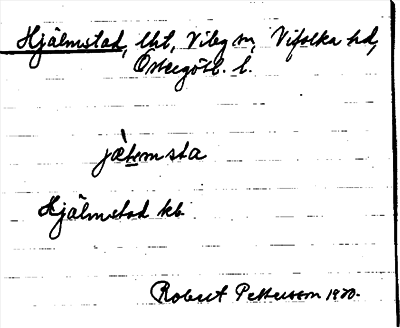 Hjälmstad, lht, Viby sn, Vifolka hd,
Östergötl. l.
jæ̀lemsta
Hjälmstad kb
Robert Pettersson 1970.